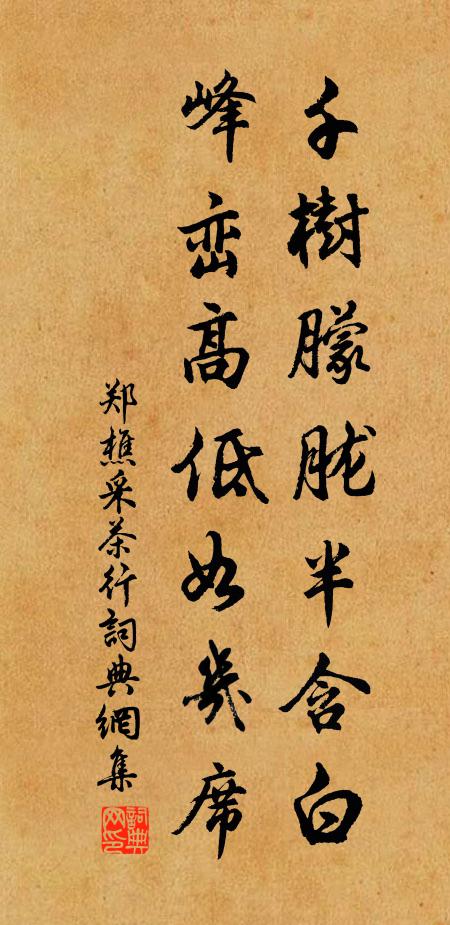 千樹朦胧半含白
峰峦高低如幾席
郑樵采茶行詞典網集
詞典
网印